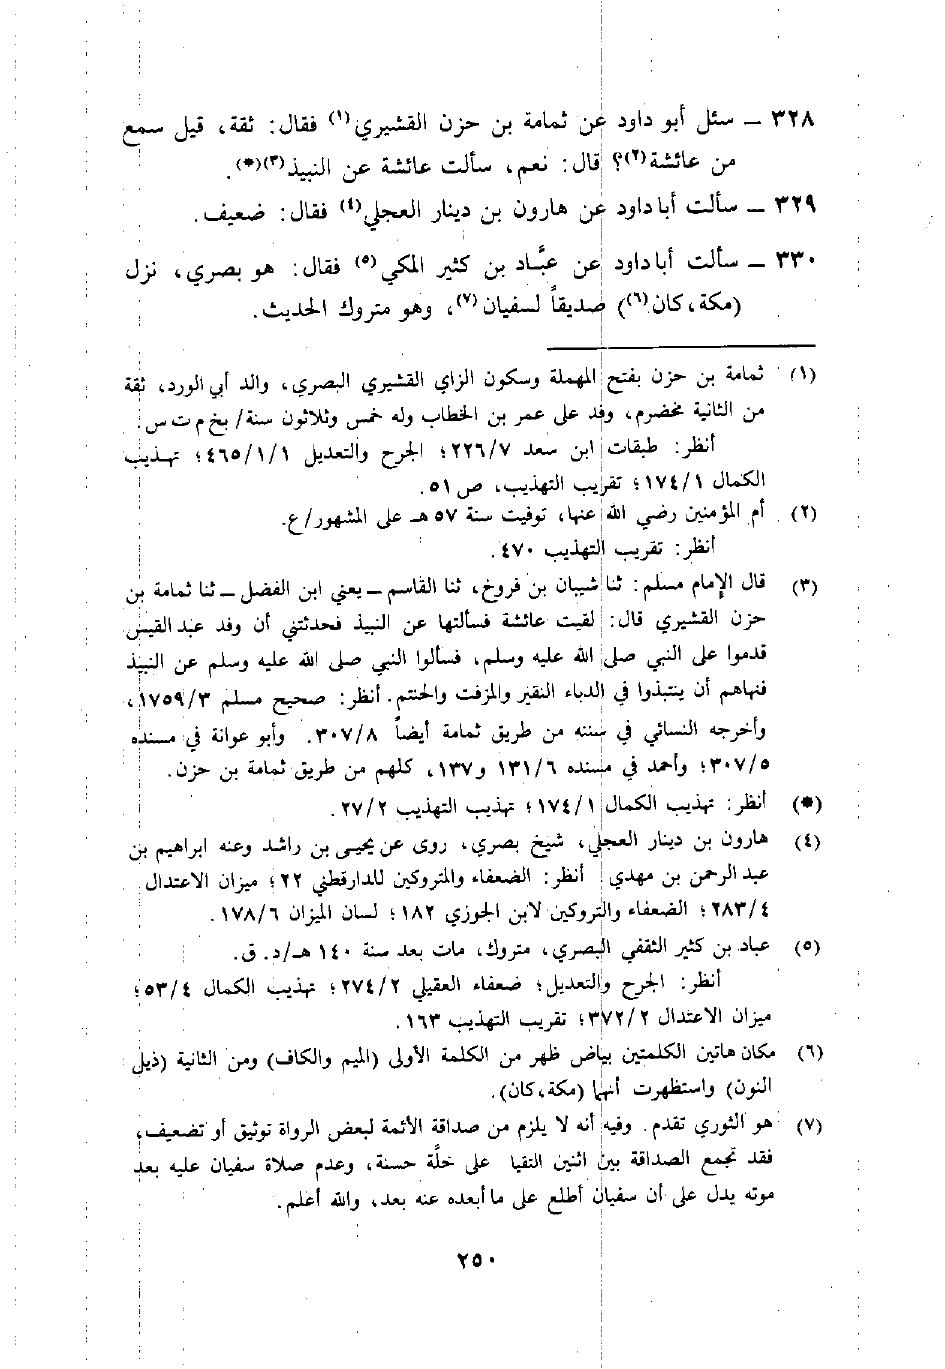 ٣٢٨ ــ سئل أبو داود عن ثمامة بن حزن القشيري(١) فقال: ثقة، قيل سمع
من عائشة(٢)؟ قال: نعم، سألت عائشة عن النبيذ(٣)(*).
٣٢٩ ــ سألت أبا داود عن هارون بن دينار العجلي(٤) فقال: ضعيف.
٣٣٠ ــ سألت أبا داود عن عبَّاد بن كثير المكي(٥) فقال: هو بصري، نزل
(مكة، كان(٦)) صديقاً لسفيان(٧)، وهو متروك الحديث.
(١) ثمامة بن حزن بفتح المهملة وسكون الزاي القشيري البصري، والد أبي الورد، ثقة
من الثانية مخضرم، وفد على عمر بن الخطاب وله خمس وثلاثون سنة/ بخ م ت س.
أنظر: طبقات ابن سعد ٢٢٦/٧؛ الجرح والتعديل ٤٦٥/١/١؛ تهذيب
الكمال ١٧٤/١؛ تقريب التهذيب، ص ٥١.
(٢) أم المؤمنين رضي الله عنها، توفيت سنة ٥٧ هـ على المشهور/ع.
أنظر: تقريب التهذيب ٤٧٠.
(٣) قال الإمام مسلم: ثنا شيبان بن فروخ، ثنا القاسم ــ يعني ابن الفضل ــ ثنا ثمامة بن
حزن القشيري قال: لقيت عائشة فسألتها عن النبيذ فحدثتني أن وفد عبد القيس
قدموا على النبي صلى الله عليه وسلم، فسألوا النبي صلى الله عليه وسلم عن النبيذ
فنهاهم أن ينتبذوا في الدباء النقير والمزفت والحنتم. أنظر: صحيح مسلم ١٧٥٩/٣،
وأخرجه النسائي في سننه من طريق ثمامة أيضاً ٣٠٧/٨. وأبو عوانة في مسنده
٣٠٧/٥؛ وأحمد في مسنده ١٣١/٦ و١٣٧، كلهم من طريق ثمامة بن حزن.
(*) أنظر: تهذيب الكمال ١٧٤/١؛ تهذيب التهذيب ٢٧/٢.
(٤) هارون بن دينار العجلي، شيخ بصري، روى عن يحيى بن راشد وعنه ابراهيم بن
عبد الرحمن بن مهدي أنظر: الضعفاء والمتروكين للدارقطني ٢٢؛ ميزان الاعتدال
٢٨٣/٤؛ الضعفاء والتروكين لابن الجوزي ١٨٢؛ لسان الميزان ١٧٨/٦.
(٥) عباد بن كثير الثقفي البصري، متروك، مات بعد سنة ١٤٠ هـ/د. ق.
أنظر: الجرح والتعديل؛ ضعفاء العقيلي ٢٧٤/٢؛ تهذيب الكمال ٥٣/٤؛
ميزان الاعتدال ٣٧٢/٢؛ تقريب التهذيب ١٦٣.
(٦) مكان هاتين الكلمتين بياض ظهر من الكلمة الأولى (الميم والكاف) ومن الثانية (ذيل
النون) واستظهرت أنهما (مكة، كان).
(٧) هو الثوري تقدم. وفيه أنه لا يلزم من صداقة الأئمة لبعض الرواة توثيق أو تضعيف،
فقد تجمع الصداقة بين اثنين التقيا على خلَّة حسنة، وعدم صلاة سفيان عليه بعد
موته يدل على أن سفيان أطلع على ما أبعده عنه بعد، والله أعلم.
٢٥٠